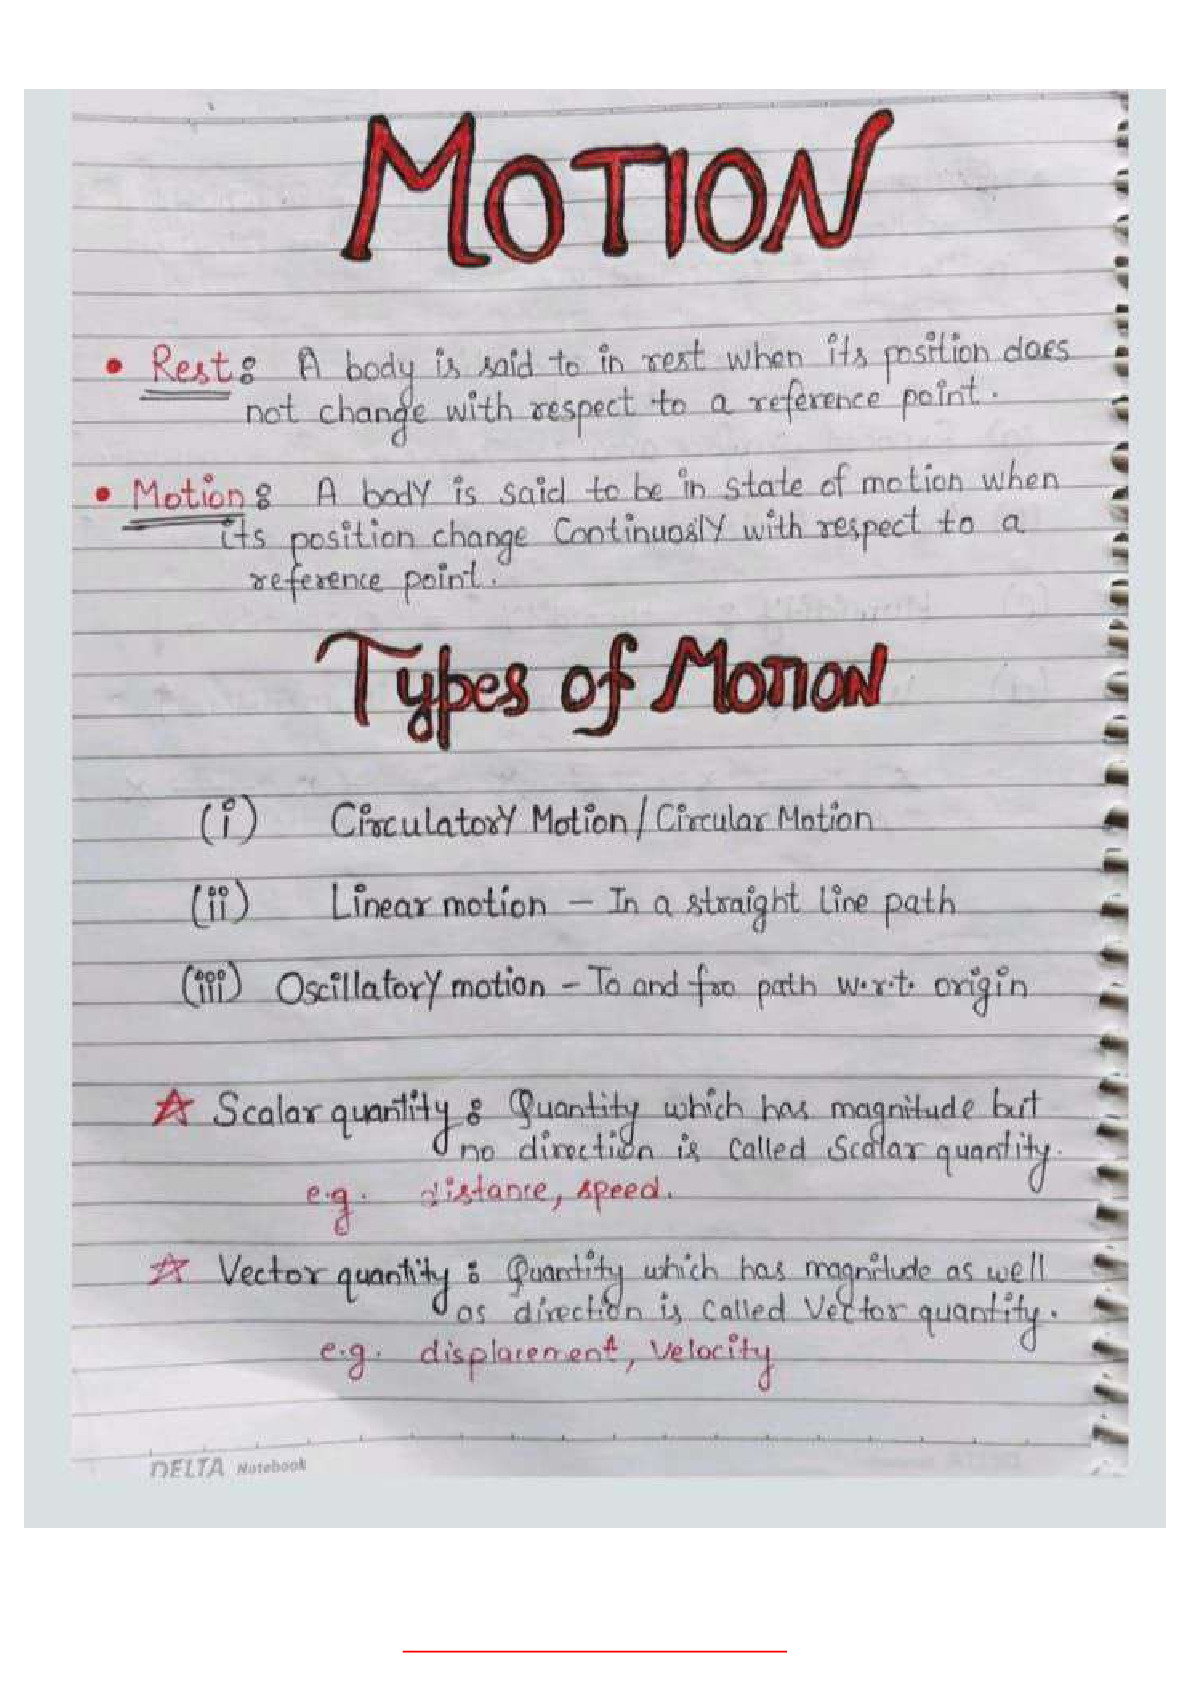 MOTION
• Rest : A body is said to in rest when its position does
not change with respect to a reference point.
• Motion : A body is said to be in state of motion when
its position change Continuosly with respect to a
reference point.
Types of MOTION
(i) Circulatory Motion / Circular Motion
(ii) Linear motion – In a straight line path
(iii) Oscillatory motion – To and fro path w.r.t. origin
☆ Scalar quantity : Quantity which has magnitude but
no direction is called Scalar quantity.
e.g. distance, speed.
☆ Vector quantity : Quantity which has magnitude as well
as direction is called Vector quantity.
e.g. displacement, Velocity
DELTA Notebook